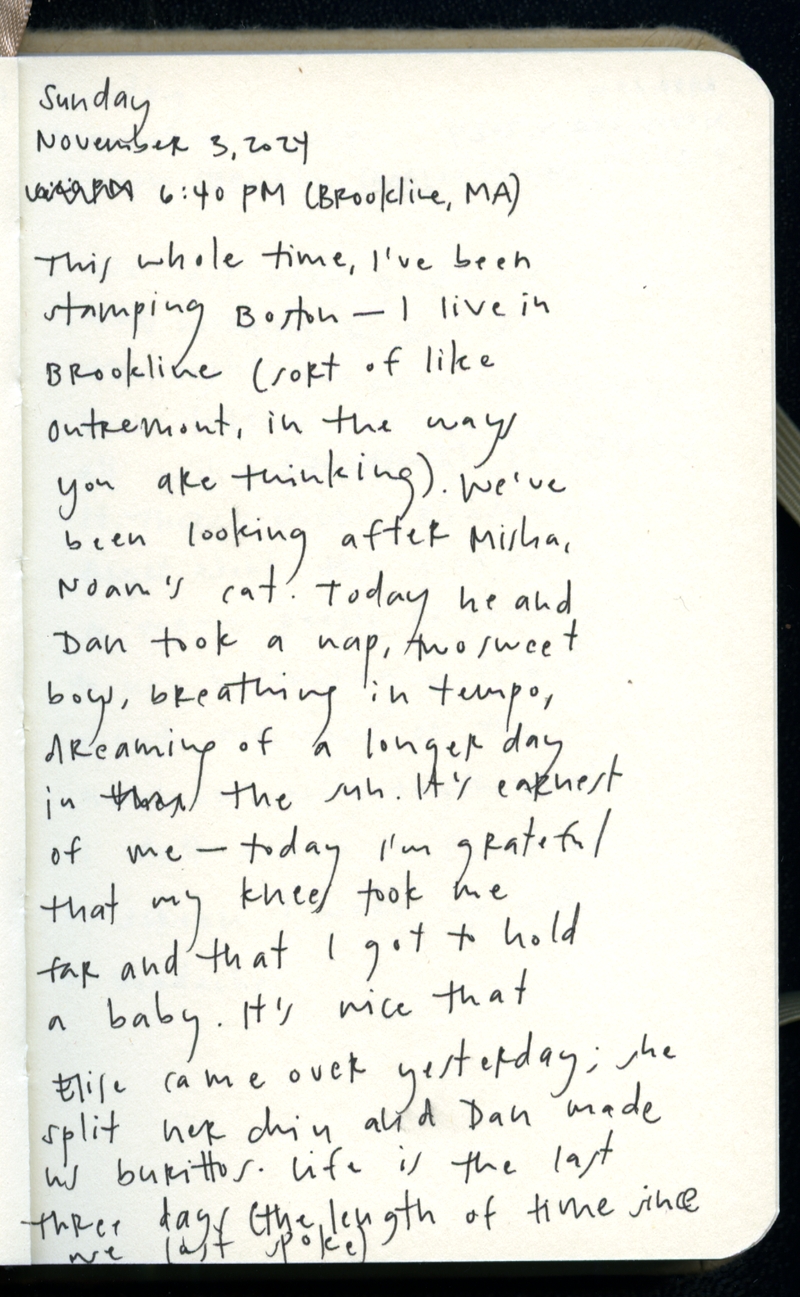 Sunday
November 3, 2024
6:40 PM (Brookline, MA)
This whole time, I've been
stamping Boston — I live in
Brookline (sort of like
outremont, in the ways
you are thinking). We've
been looking after Misha,
Noam's cat. Today he and
Dan took a nap, two sweet
boys, breathing in tempo,
dreaming of a longer day
in the sun. It's earnest
of me — today I'm grateful
that my knees took me
far and that I got to hold
a baby. It's nice that
Elise came over yesterday; she
split her chin and Dan made
us burittos. Life is the last
three days (the length of time since
we last spoke)